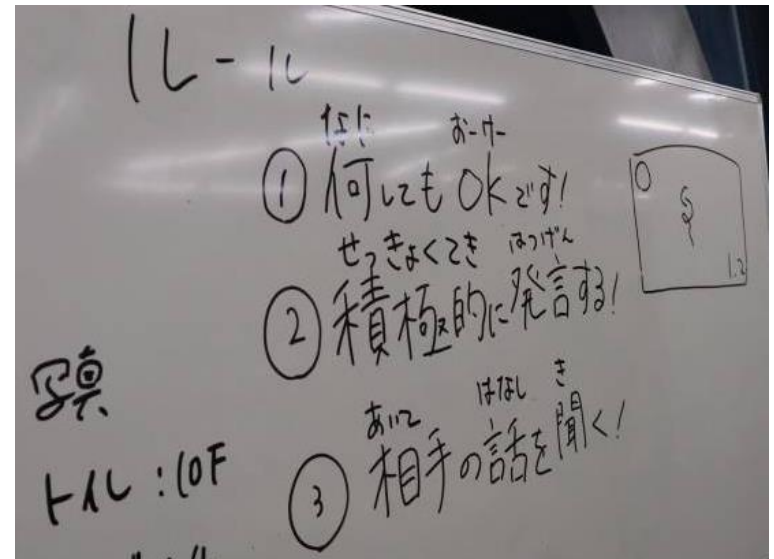 ルール
なに おーけー
① 何してもOKです!
せっきょくてき はつげん
② 積極的に発言する!
あいて はなし き
③ 相手の話を聞く!
写真
トイレ:10F
0
1.2